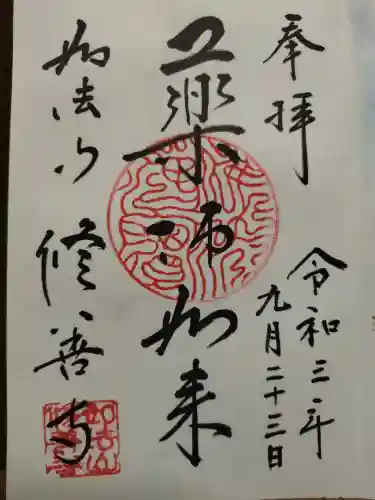 奉拝
令和三年
九月二十三日
薬師如来
如法山
修善寺